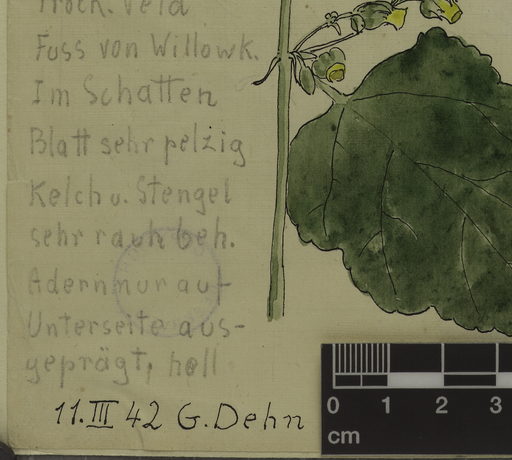 Trock. Veld
Fuss von Willowk.
Im Schatten
Blatt sehr pelzig
Kelch u. Stengel
sehr rauh beh.
Adern nur auf
Unterseite aus-
geprägt, hell
11.III 42 G. Dehn
0 1 2 3
cm